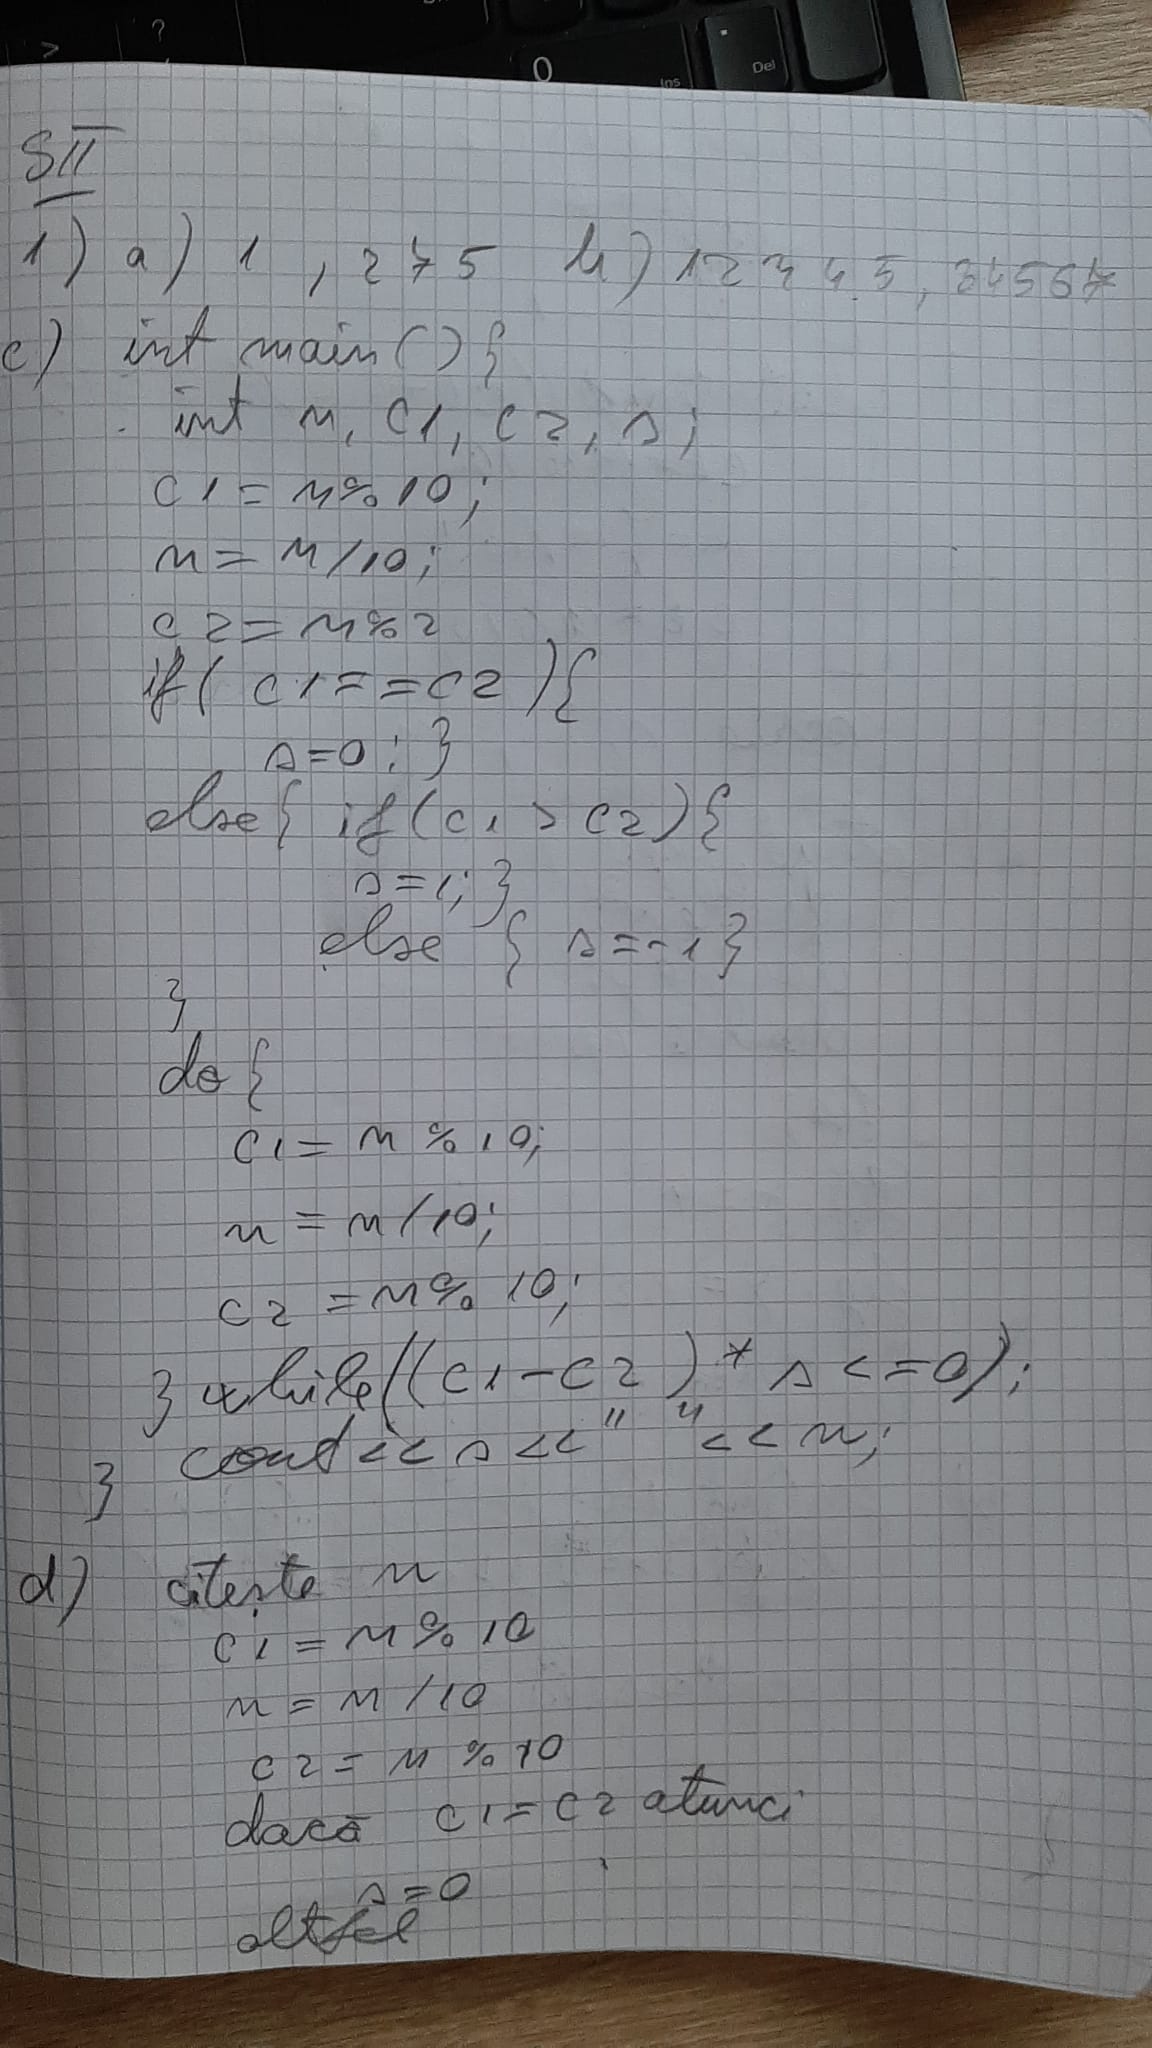 ?
>
0
Ins
Del
SII
1) a) 1 , 275 b) 12345, 34567
c) int main(){
int n, c1, c2, s;
c1=n%10;
n=n/10;
c2=n%2
if(c1==c2){
s=0; }
else{ if(c1>c2){
s=1; }
else { s=-1}
}
do{
c1=n%10;
n=n/10;
c2=n%10;
}while((c1-c2)*s<=0);
cout<<s<<" "<<n;
}
d) citește n
c1=n%10
n=n/10
c2=n%10
dacă c1=c2 atunci
s=0
altfel